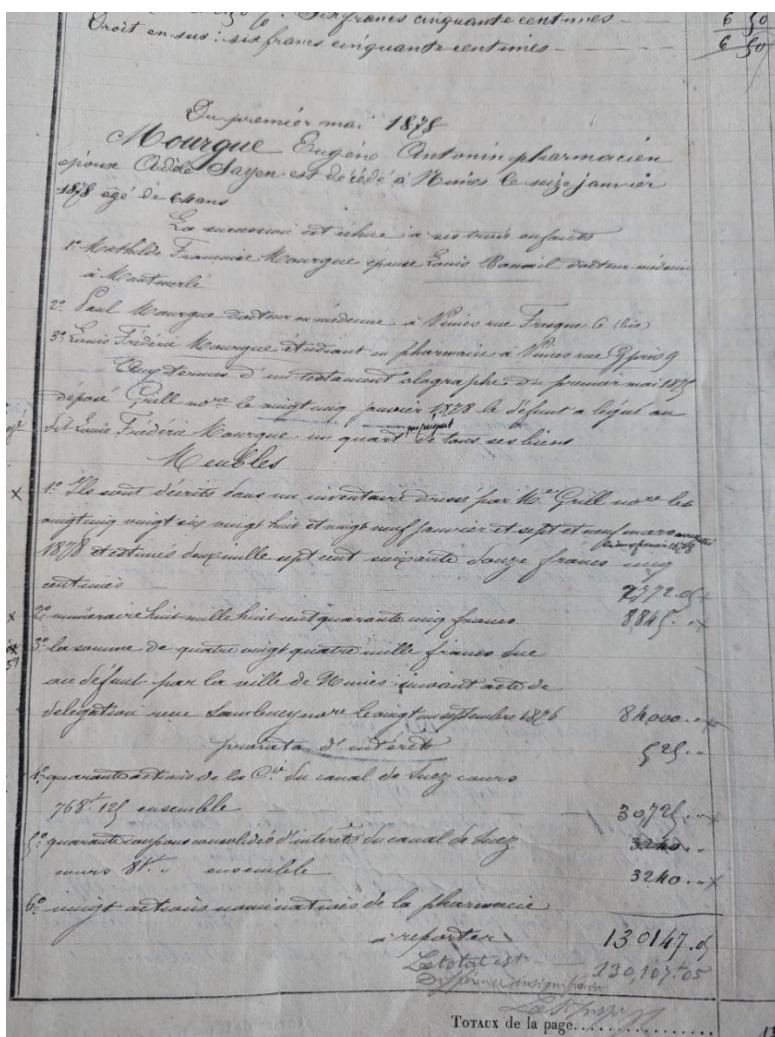 six francs cinquante centimes 6 50
Droit en sus : six francs cinquante centimes 6 50
Du premier mai 1878
Mourgue Eugène Antonin pharmacien
époux Adèle Sayen est décédé à Nimes le seize janvier
1878 âgé de 64 ans
La succession est échue à ses trois enfants
1° Mathilde Francine Mourgue épouse Louis docteur médecin
à Montmerle
2° Paul Mourgue docteur en médecine à Nimes rue Fresque 6 (bis)
3° Louis Frédéric Mourgue étudiant en pharmacie à Nimes rue 9
Aux termes d'un testament olographe du premier mai 1875
déposé Grill nore le vingt cinq janvier 1878 le défunt a légué au
dit Louis Frédéric Mourgue un quart par préciput de tous ses biens
Meubles
1° Ils sont décrits dans un inventaire dressé par Me Grill nore les
vingt cinq vingt six vingt huit et vingt neuf janvier et sept et neuf mars
1878 et estimés deux mille sept cent soixante douze francs cinq
centimes 2772.05
2° numéraire huit mille huit cent quarante cinq francs 8845..
3° la somme de quatre vingt quatre mille francs due
au défunt par la ville de Nimes suivant acte de
délégation reçu nore le vingt un septembre 1876 84000..
prorata d'intérêts 525..
4° quarante actions de la Cie du canal de Suez cours
768f.125 ensemble 30725..
5° quarante coupons consolidés d'intérêt du canal de Suez 3240..
cours 81f.. ensemble 3240..
6° vingt actions nominatives de la pharmacie
à reporter 130147.05
Le total est 130,107f05
Différence insignifiante
TOTAUX de la page